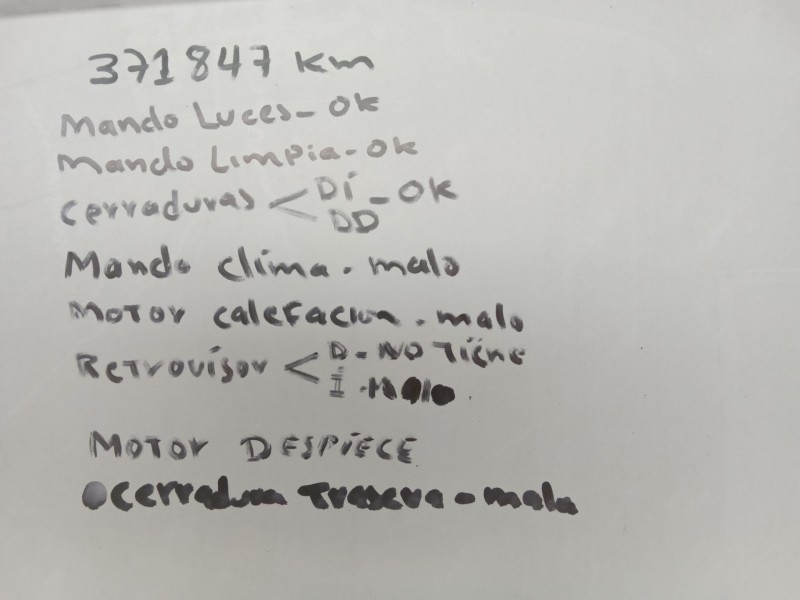 371847 Km
Mando Luces - OK
Mando Limpia - OK
Cerraduras < DI - OK
DD
Mando clima. malo
Motor calefacion. malo
Retrovisor < D - NO Tiene
I - Malo.
MOTOR DESPIECE
cerradura Trasera - mala